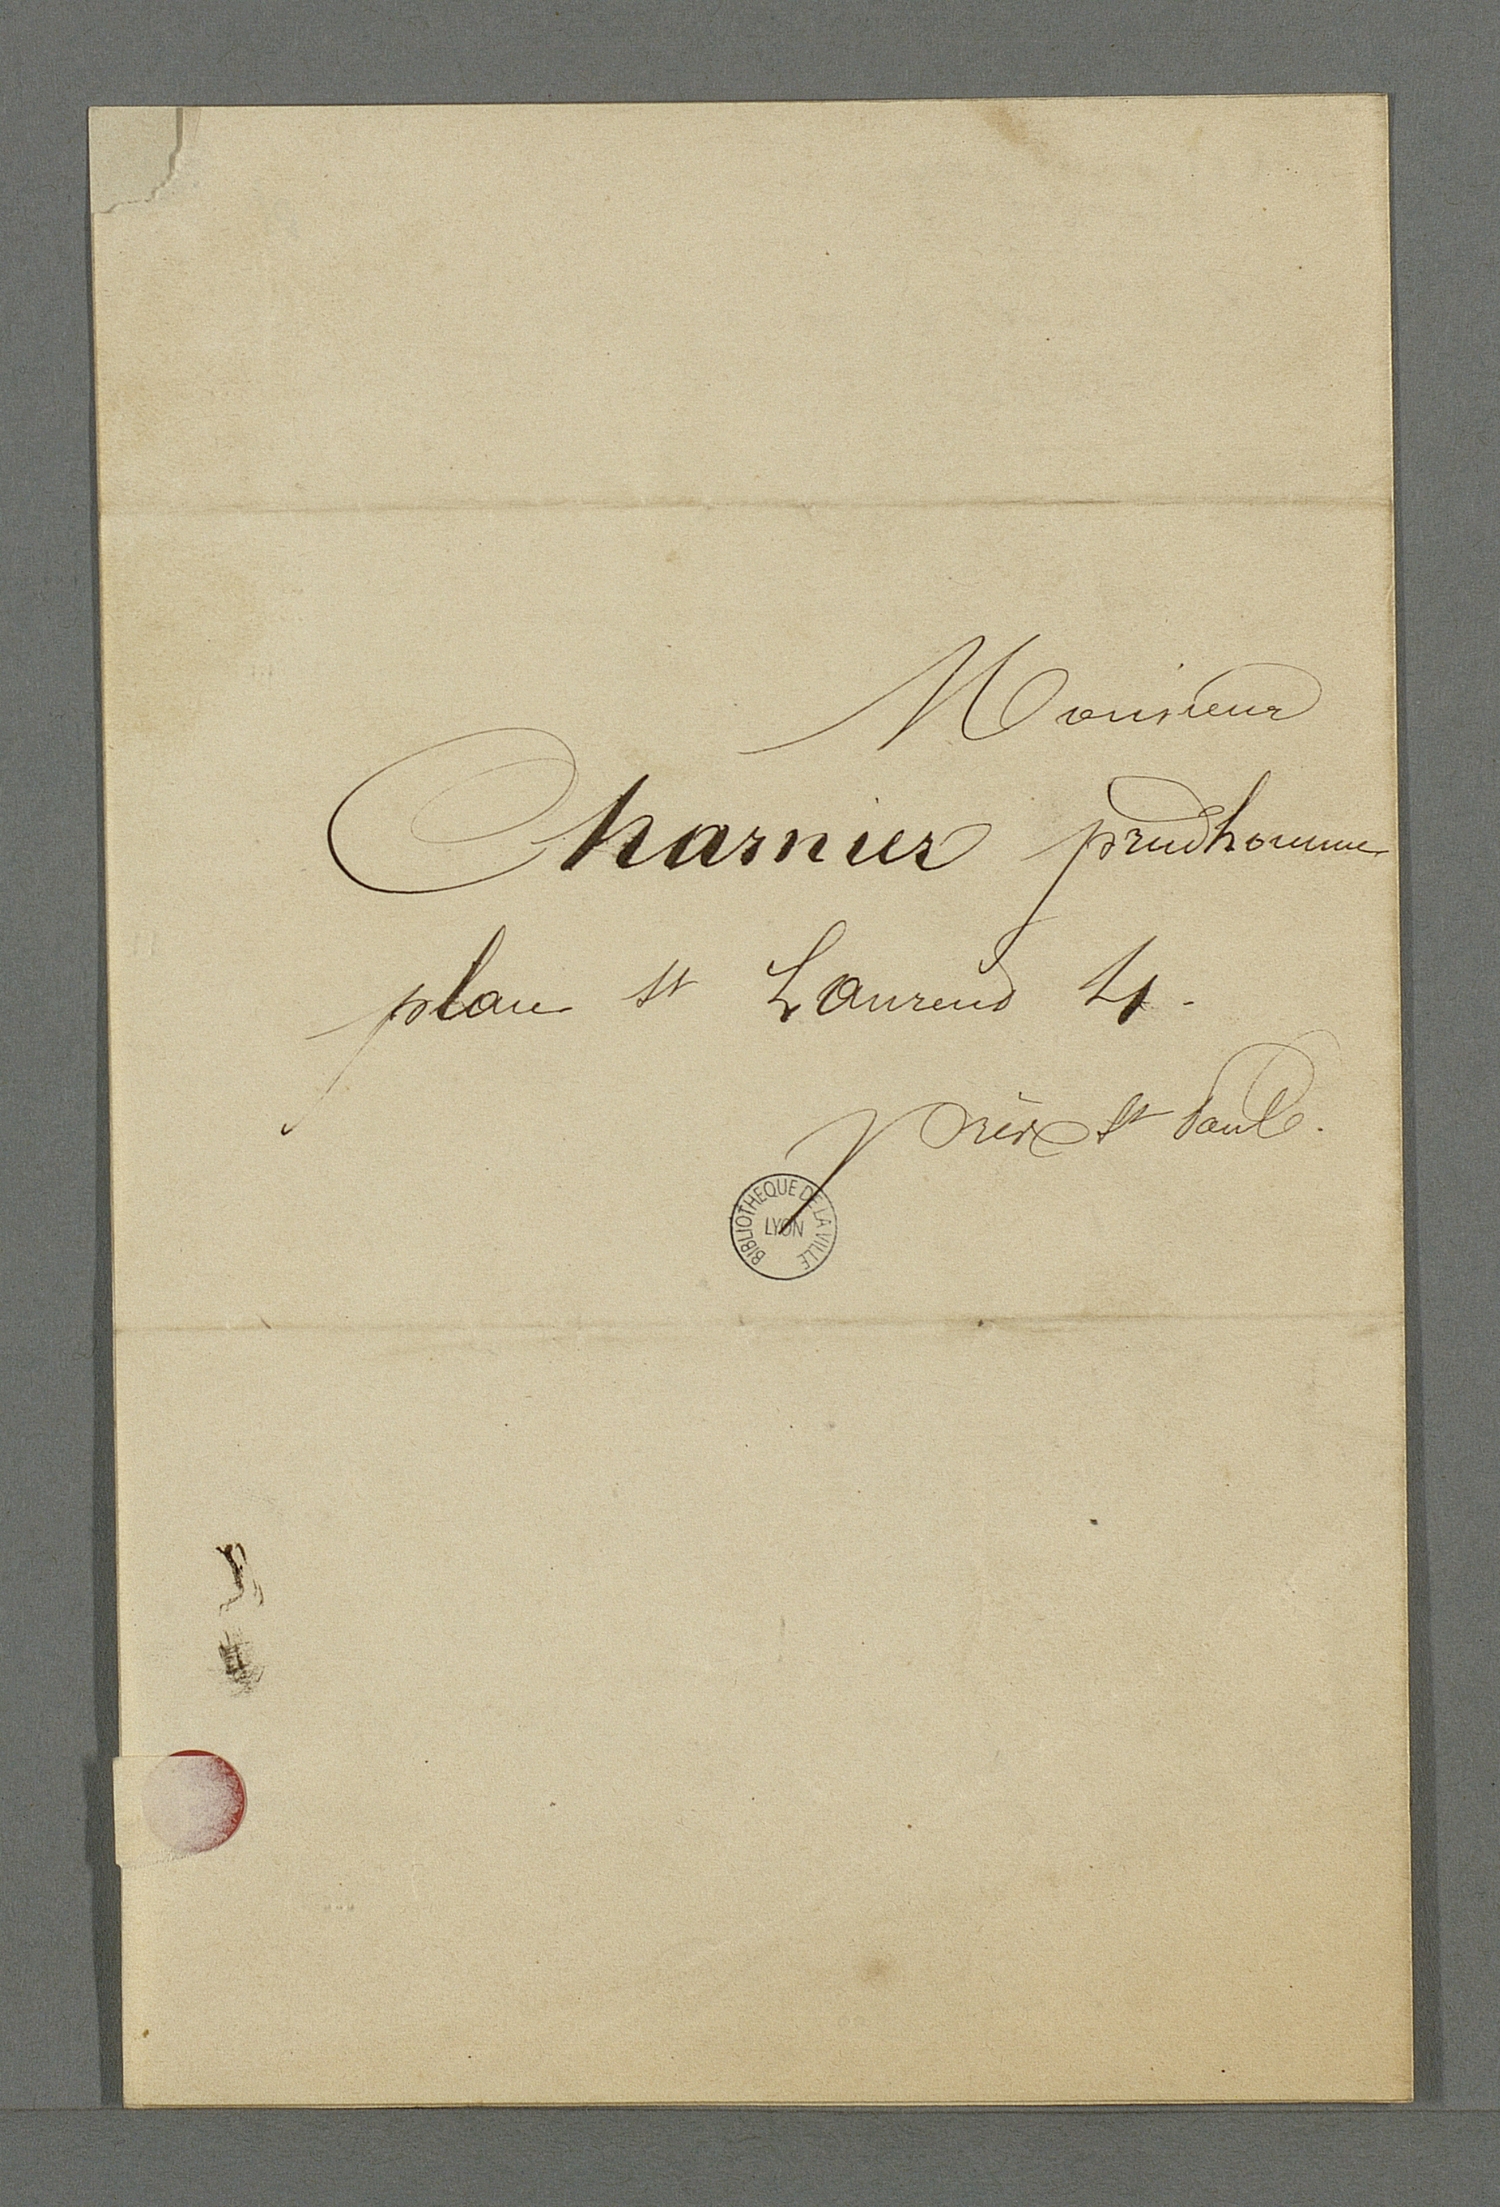 Monsieur
Charnier prudhomme
place st Laurend 4.
près St Paul.
BIBLIOTHEQUE DE LA VILLE
LYON